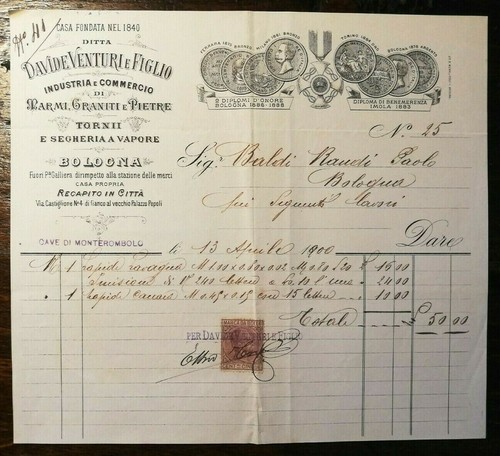 N.º 41
CASA FONDATA NEL 1840
DITTA
DAVIDE VENTURI E FIGLIO
INDUSTRIA E COMMERCIO
DI
MARMI, GRANITI E PIETRE
TORNII
E SEGHERIA A VAPORE
BOLOGNA
Fuori Pta Galliera dirimpetto alla stazione delle merci
CASA PROPRIA
RECAPITO IN CITTÀ
Via Castiglione Nº 4 di fianco al vecchio Palazzo Pepoli
CAVE DI MONTEROMBOLO
FERRARA 1871 BRONZO
MILANO 1881 BRONZO
TORINO 1884
BOLOGNA 1875 ARGENTO
2 DIPLOMI D'ONORE
BOLOGNA 1886-1888
DIPLOMA DI BENEMERENZA
IMOLA 1883
Nº 25
Sig. Baldi Paolo
Bologna
pei seguenti lavori
Dare
li 13 Aprile 1900
1 lapide £ 16 00
Nº 240 lettere a 10 l'una 24 00
1 lapide con 15 lettere 10 00
Totale £ 50.00
MARCA DA BOLLO
PER DAVIDE VENTURI E FIGLIO